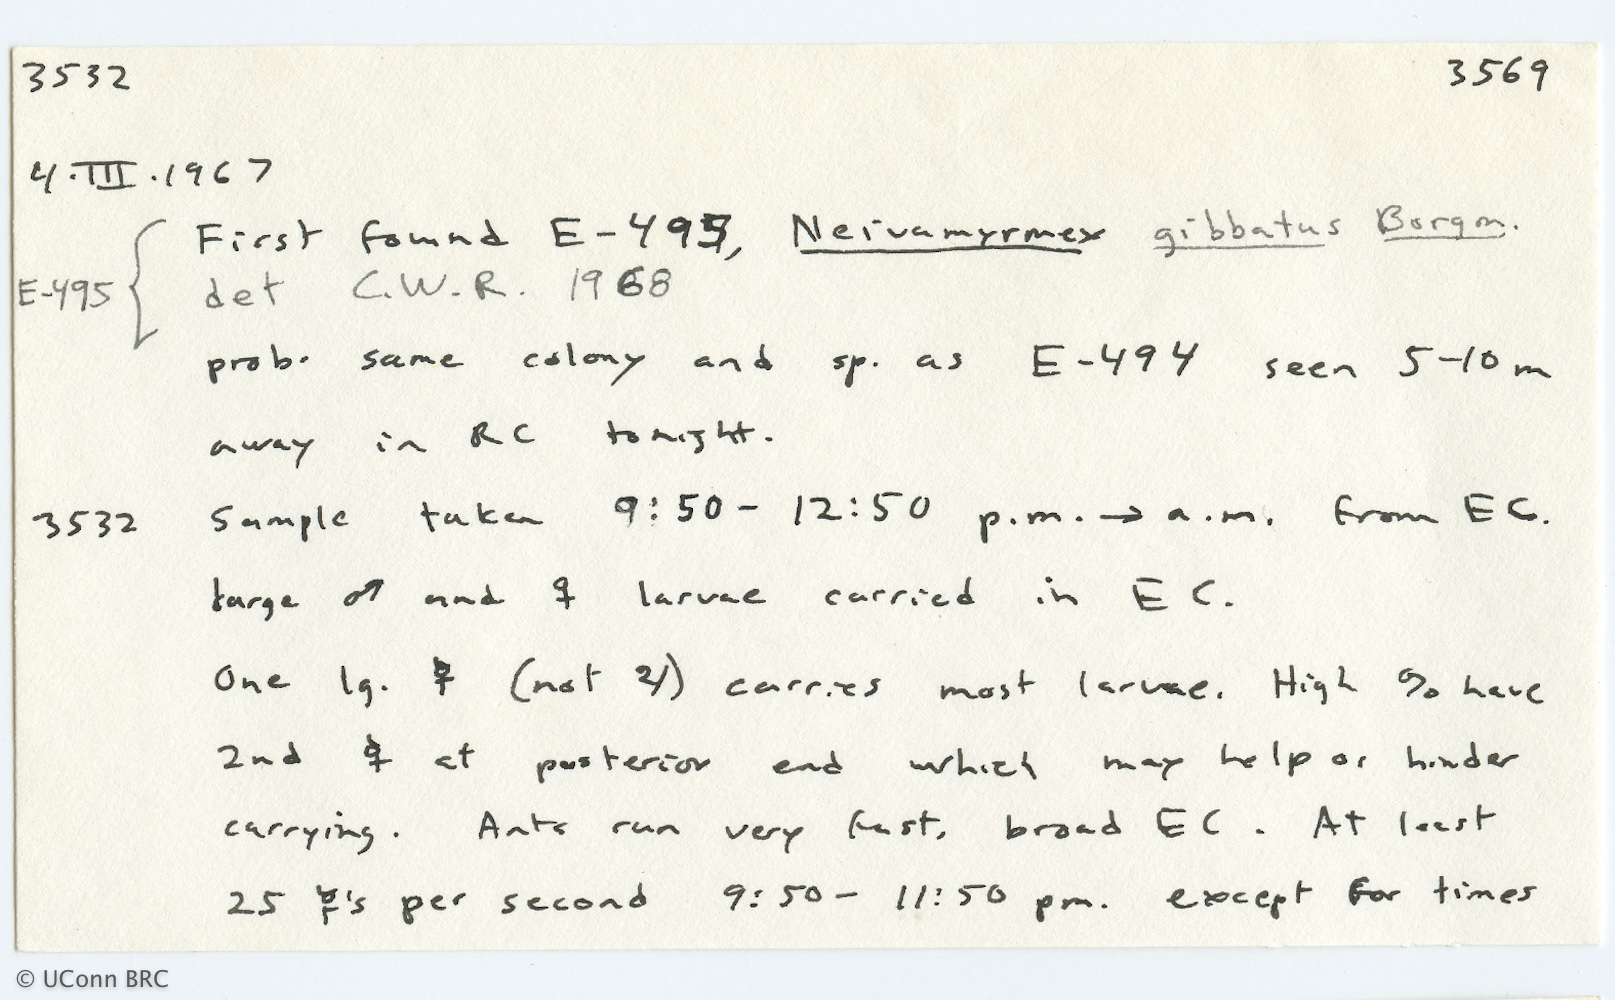 3532 3569
4.III.1967
First found E-495, Neivamyrmex gibbatus Borgm.
E-495 { det C.W.R. 1968
prob. same colony and sp. as E-494 seen 5-10 m
away in RC tonight.
3532 Sample taken 9:50 - 12:50 p.m. → a.m. from EC.
Large ♂ and ☿ larvae carried in EC.
One lg. ☿ (not 2) carries most larvae. High % have
2nd ☿ at posterior end which may help or hinder
carrying. Ants run very fast, broad EC. At least
25 ☿'s per second 9:50 - 11:50 pm. except for times
© UConn BRC